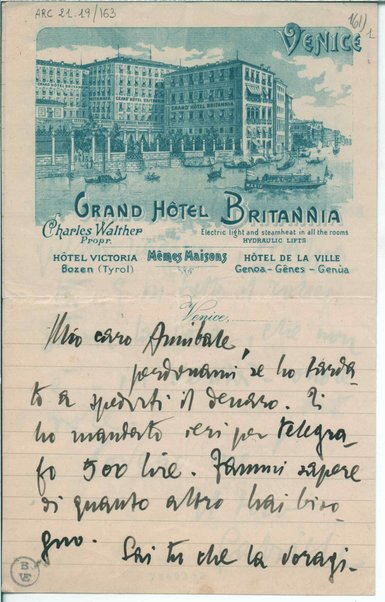 ARC 21.19/163
161/1
VENICE
GRAND HOTEL BRITANNIA
GRAND HOTEL BRITANNIA
GRAND HÔTEL BRITANNIA
Charles Walther
Propr.
Electric light and steamheat in all the rooms
HYDRAULIC LIFTS
HÔTEL VICTORIA
Bozen (Tyrol)
Mêmes Maisons
HÔTEL DE LA VILLE
Genoa-Gênes-Genüa
Venice,
Mio caro Annibale,
perdonami, se ho tarda-
to a spedirti il denaro. Ti
ho mandato ieri per telegra-
fo 500 lire. Fammi sapere
di quanto altro hai biso-
gno. Sai tu che la voragi-
B
VE